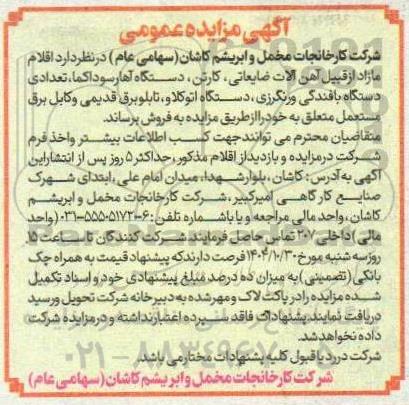 آگهی مزایده عمومی
شرکت کارخانجات مخمل و ابریشم کاشان (سهامی عام) در نظر دارد اقلام
مازاد از قبیل آهن آلات ضایعاتی، کارتن، دستگاه آهار سود اکما، تعدادی
دستگاه بافندگی و رنگرزی، دستگاه اتوکلاو، تابلو برق قدیمی و کابل برق
مستعمل متعلق به خود را از طریق مزایده به فروش برساند.
متقاضیان محترم می توانند جهت کسب اطلاعات بیشتر و اخذ فرم
شرکت در مزایده و بازدید از اقلام مذکور، حداکثر ۵ روز پس از انتشار این
آگهی به آدرس: کاشان، بلوار شهدا، میدان امام علی، ابتدای شهرک
صنایع کارگاهی امیرکبیر، شرکت کارخانجات مخمل و ابریشم
کاشان، واحد مالی مراجعه و یا با شماره تلفن: ۶-۰۳۱-۵۵۵۰۵۱۷۲ (واحد
مالی) داخلی ۲۰۷ تماس حاصل فرمایند. شرکت کنندگان تا ساعت ۱۵
روز سه شنبه مورخ ۱۴۰۴/۱۰/۳۰ فرصت دارند که پیشنهاد قیمت به همراه چک
بانکی (تضمینی) به میزان ده درصد مبلغ پیشنهادی خود و اسناد تکمیل
شده مزایده را در پاکت لاک و مهر شده به دبیرخانه شرکت تحویل و رسید
دریافت نمایند. پیشنهادات فاقد سپرده اعتبار نداشته و در مزایده شرکت
داده نخواهد شد.
شرکت در رد یا قبول کلیه پشنهادات مختار می باشد.
۰۲۱-۸۸۳۴۹۶۷۰
شرکت کارخانجات مخمل و ابریشم کاشان (سهامی عام)